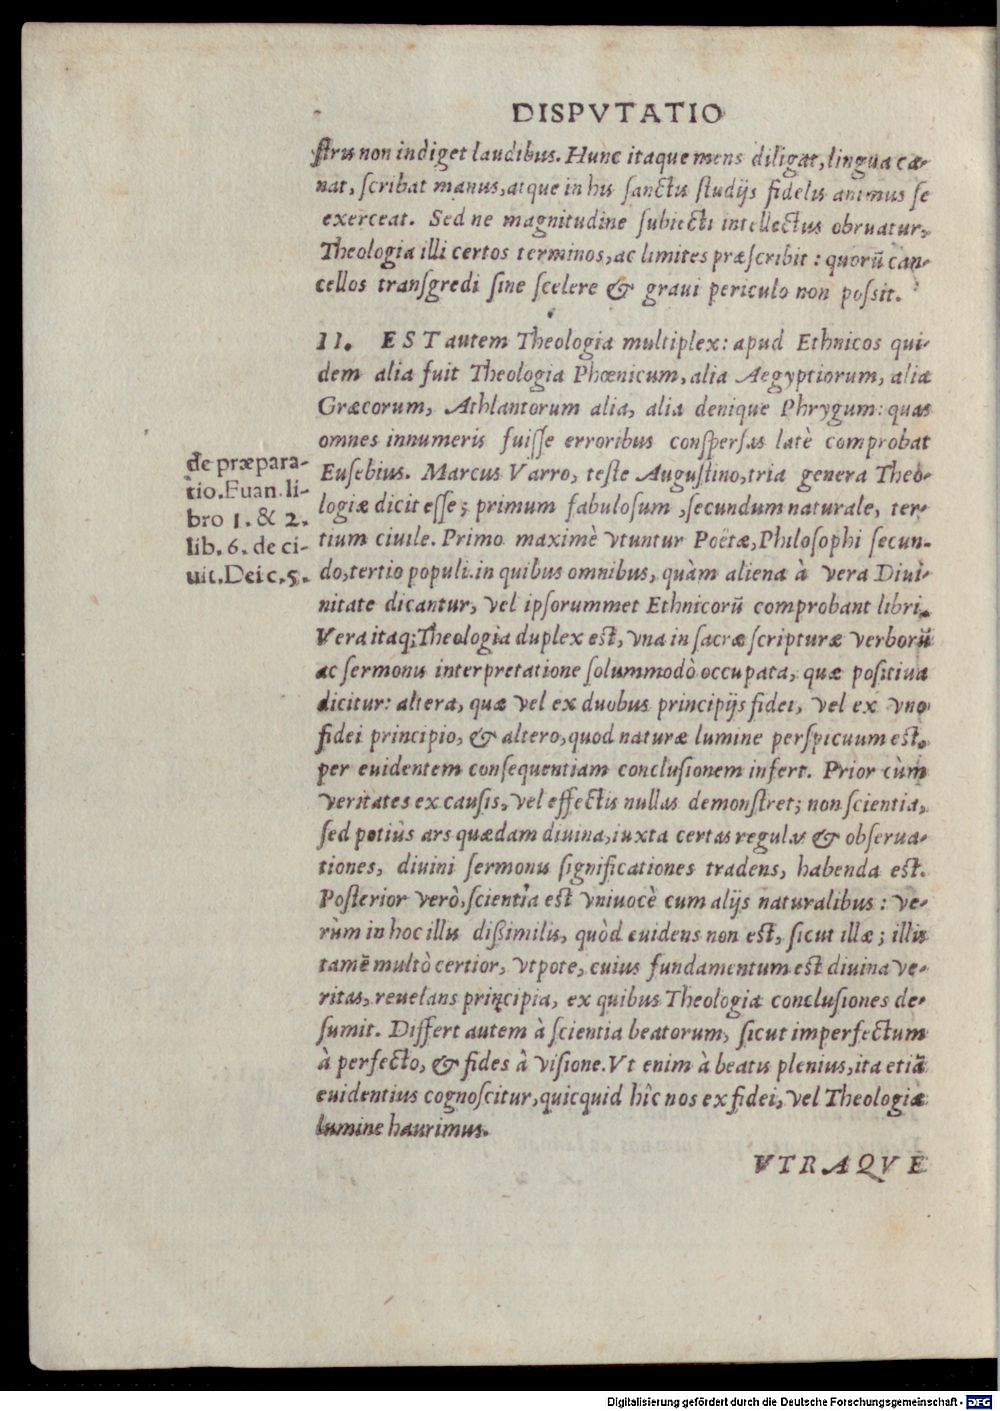 DISPVTATIO
ſtris non indiget laudibus. Hunc itaque mens diligat, lingua ca-
nat, ſcribat manus, atque in his ſanctis ſtudijs fidelis animus ſe
exerceat. Sed ne magnitudine ſubiecti intellectus obruatur,
Theologia illi certos terminos, ac limites præſcribit: quorū can-
cellos tranſgredi ſine ſcelere & graui periculo non poſsit.
II. EST autem Theologia multiplex: apud Ethnicos qui-
dem alia fuit Theologia Phœnicum, alia Aegyptiorum, alia
Græcorum, Athlantorum alia, alia denique Phrygum: quas
omnes innumeris fuiſſe erroribus conſperſas latè comprobat
Euſebius. Marcus Varro, teſte Auguſtino, tria genera Theo-
logiæ dicit eſſe; primum fabuloſum, ſecundum naturale, ter-
tium ciuile. Primo maximè vtuntur Poëtæ, Philoſophi ſecun-
do, tertio populi. in quibus omnibus, quàm aliena à vera Diui-
nitate dicantur, vel ipſorummet Ethnicorū comprobant libri.
Vera itaq; Theologia duplex eſt, vna in ſacræ ſcripturæ verborū
ac ſermonis interpretatione ſolummodò occupata, quæ poſitiua
dicitur: altera, quæ vel ex duobus principijs fidei, vel ex vno
fidei principio, & altero, quod naturæ lumine perſpicuum eſt,
per euidentem conſequentiam concluſionem infert. Prior cùm
veritates ex cauſis, vel effectis nullas demonſtret; non ſcientia,
ſed potiùs ars quædam diuina, iuxta certas regulas & obſerua-
tiones, diuini ſermonis ſignificationes tradens, habenda eſt.
Poſterior verò, ſcientia eſt vniuocè cum alijs naturalibus: ve-
rùm in hoc illis dißimilis, quòd euidens non eſt, ſicut illæ; illis
tamē multò certior, vtpote, cuius fundamentum eſt diuina ve-
ritas, reuelans principia, ex quibus Theologia concluſiones de-
ſumit. Differt autem à ſcientia beatorum, ſicut imperfectum
à perfecto, & fides à viſione. Vt enim à beatis plenius, ita etiā
euidentius cognoſcitur, quicquid hîc nos ex fidei, vel Theologiæ
lumine haurimus.
VTRAQVE
de præpara-
tio. Euan. li-
bro 1. & 2.
lib. 6. de ci-
uit. Dei c. 5.
Digitalisierung gefördert durch die Deutsche Forschungsgemeinschaft - DFG